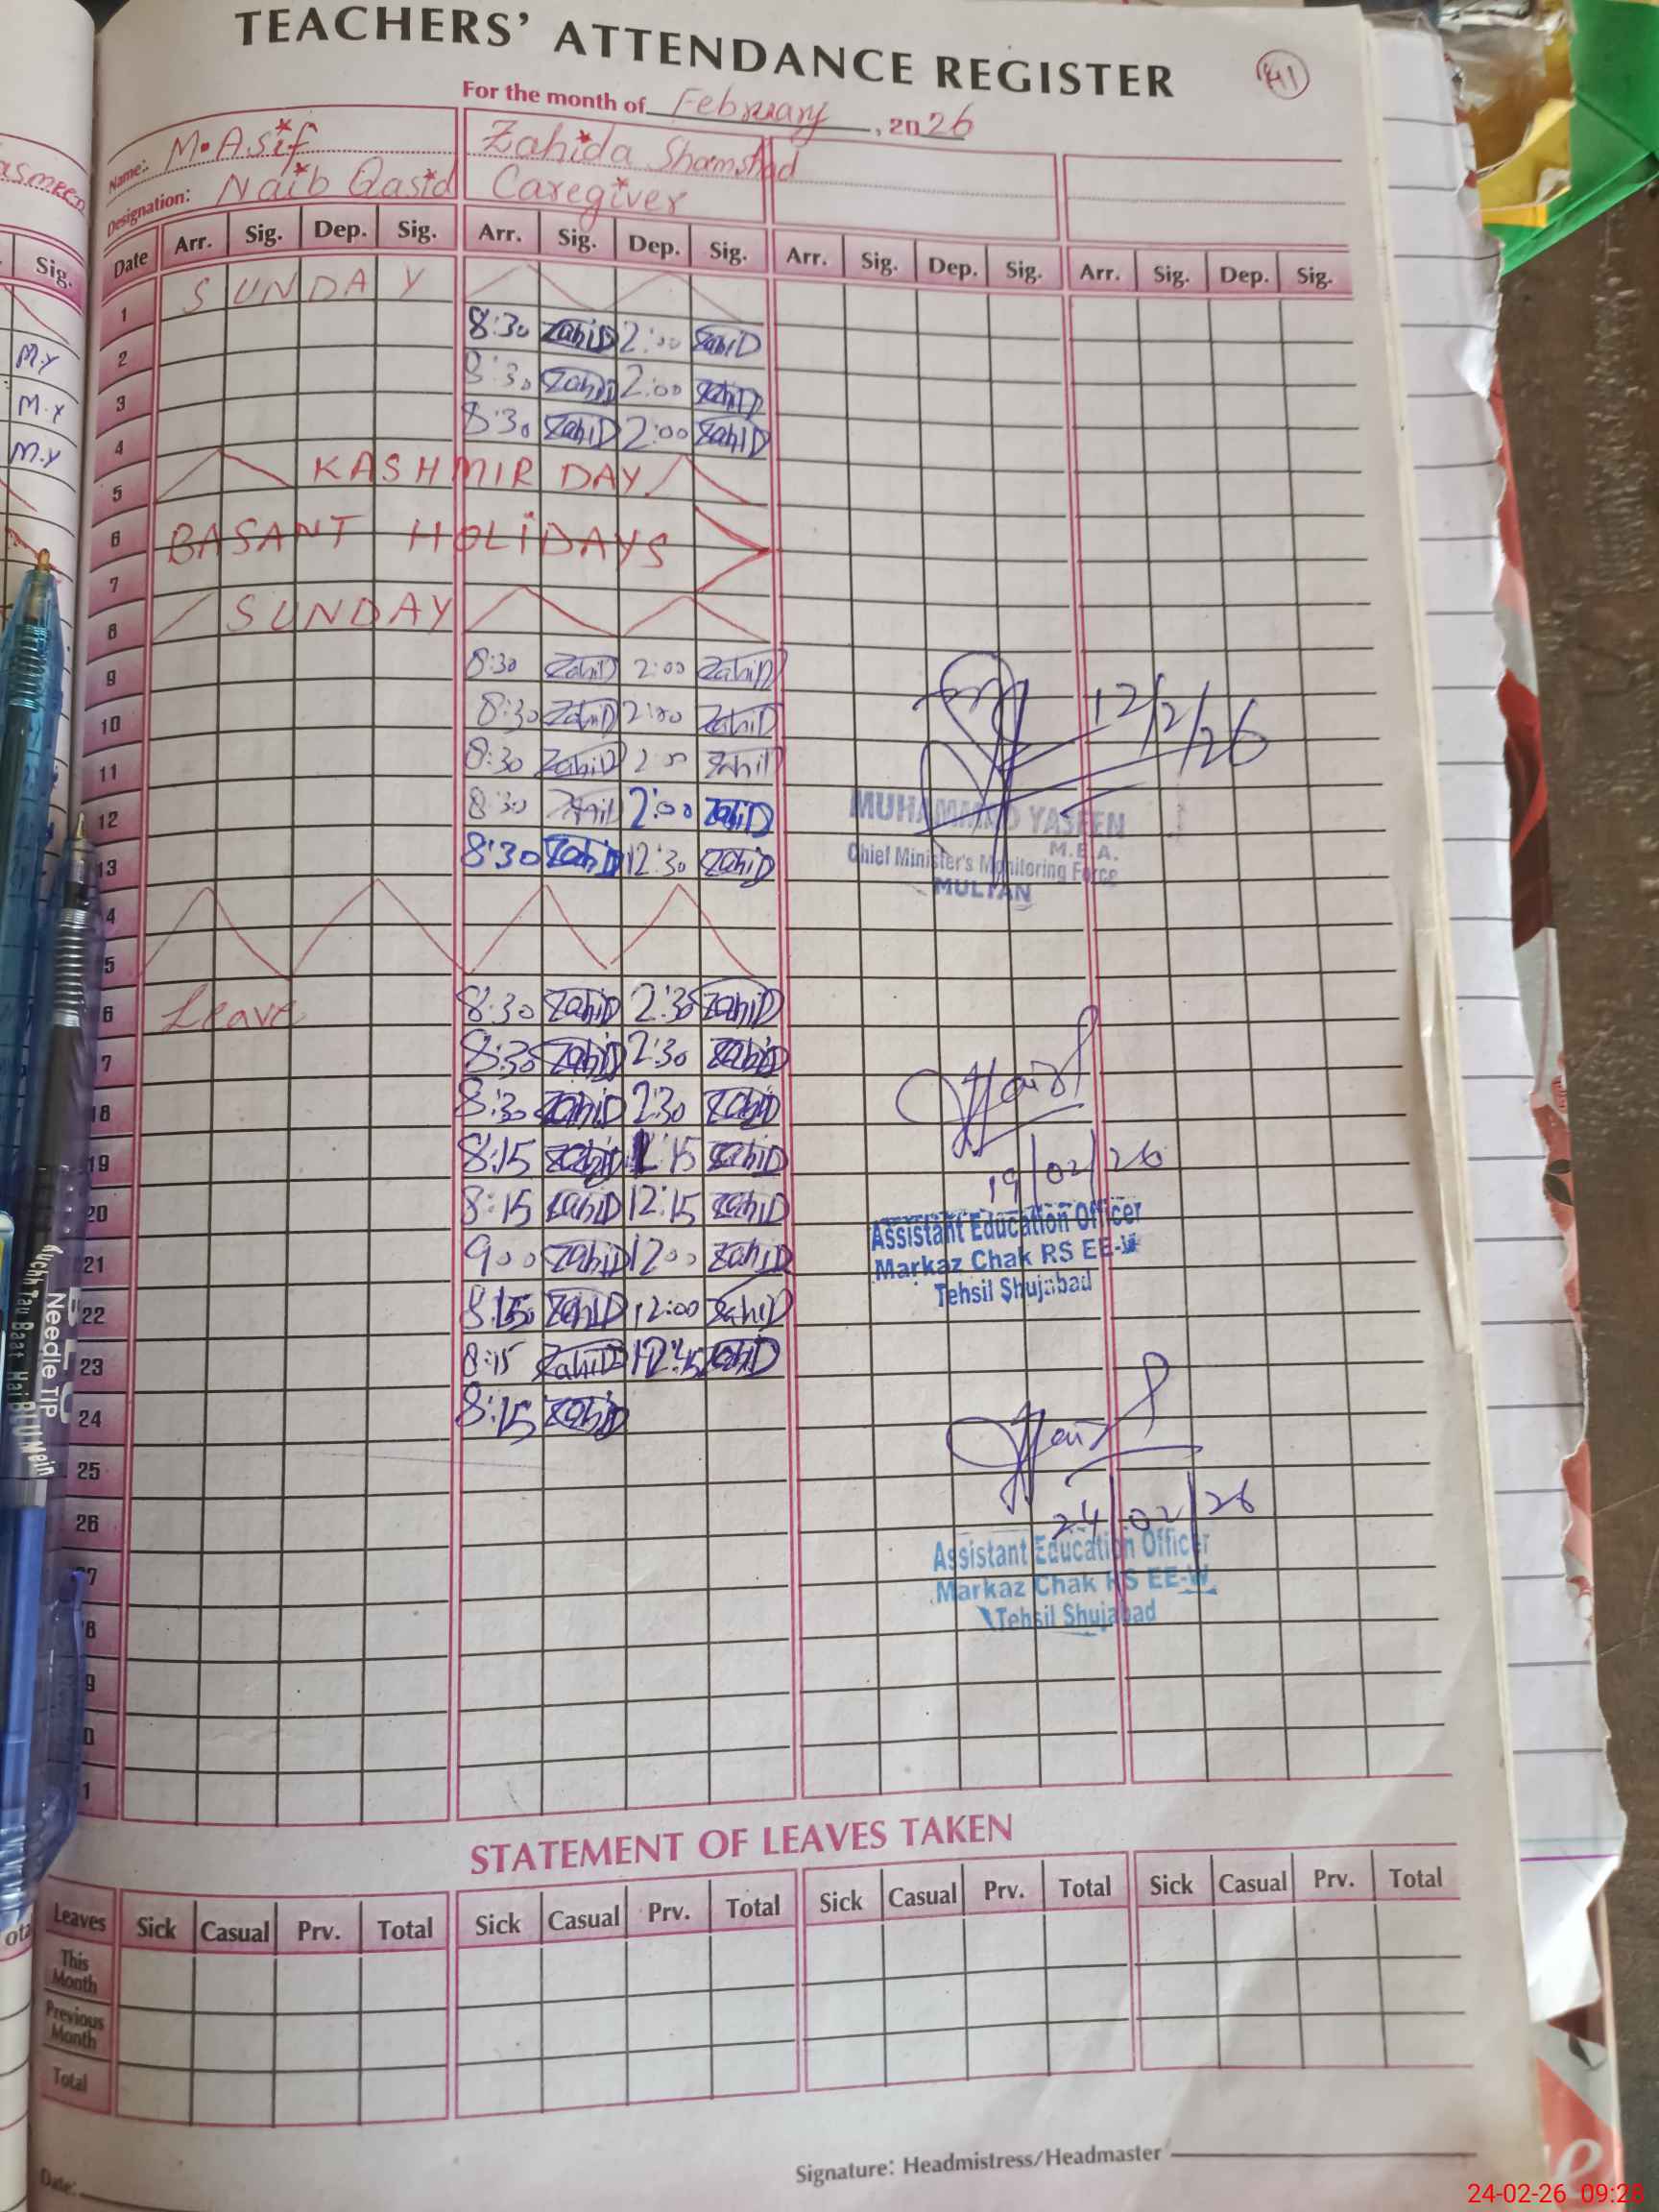 TEACHERS' ATTENDANCE REGISTER
141
For the month of February, 2026
Name: M. Asif Zahida Shamshad
Designation: Naib Qasid Caregiver
asmeen
Sig.
Date Arr. Sig. Dep. Sig. Arr. Sig. Dep. Sig. Arr. Sig. Dep. Sig. Arr. Sig. Dep. Sig.
1 SUNDAY
2 8:30 ZahiD 2:00 ZahiD
M.Y
3 8:30 ZahiD 2:00 ZahiD
M.Y
4 8:30 ZahiD 2:00 ZahiD
M.Y
5 KASHMIR DAY
6 BASANT HOLIDAYS
7
8 SUNDAY
9 8:30 ZahiD 2:00 ZahiD
10 8:30 ZahiD 2:00 ZahiD
12/2/26
11 8:30 ZahiD 2 00 ZahiD
12 8:30 ZahiD 2:00 ZahiD
MUHAMMAD YASEEN
M.E.A.
13 8:30 ZahiD 12:30 ZahiD
Chief Minister's Monitoring Force
MULTAN
4
5
6 Leave 8:30 ZahiD 2:30 ZahiD
7 8:30 ZahiD 2:30 ZahiD
18 8:30 ZahiD 2:30 ZahiD
19 8:15 ZahiD :15 ZahiD
19/02/26
20 8:15 ZahiD 12:15 ZahiD
Assistant Education Officer
Markaz Chak RS EE-W
Tehsil Shujabad
21 9:00 ZahiD 12:00 ZahiD
22 ZahiD 12:00 ZahiD
23 8:15 ZahiD ZahiD
24 8:15 ZahiD
25
26
24/02/26
Assistant Education Officer
Markaz Chak RS EE-W
Tehsil Shujabad
7
8
9
0
1
Needle TIP
Kuchh Tau Baat Hai
STATEMENT OF LEAVES TAKEN
Leaves Sick Casual Prv. Total Sick Casual Prv. Total Sick Casual Prv. Total Sick Casual Prv. Total
This Month
Previous Month
Total
Date:
Signature: Headmistress/Headmaster
24-02-26 09:28